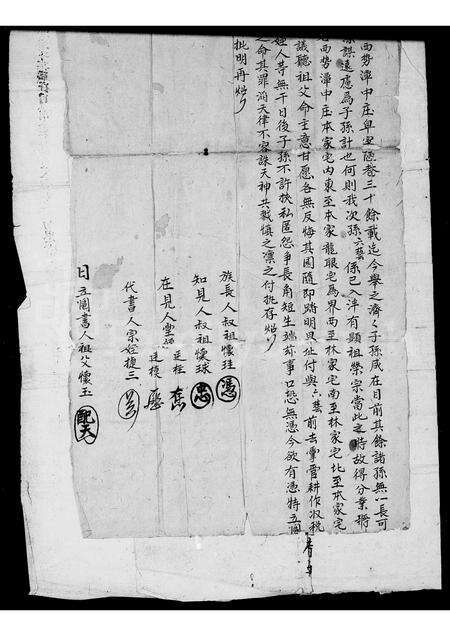 西勢潭中庄卑室隱巷三十餘載迄今舉之濟濟子孫咸在目前其餘諸孫無一長可
深謀遠慮為子孫計也何則我次孫六藝係已入泮有顯祖榮宗當此之時故得分業將
西勢潭中庄本家宅內東至本家龍眼宅為界西至林家宅南至林家宅北至本家宅
議聽祖父命主意甘愿各無反悔其園隨即踏明四址付與六藝前去掌管耕作收稅
姪人等無干日後子孫不許挾私匿怨爭長角短生端滋事口恐無憑今欲有憑特立鬮
之命其罪滔天律不容誅天神共戮慎之凜之付執存炤
批明再炤
族長人叔祖懷珪 憑
知見人叔祖懷球 忠
在見人
廷柱
代書人宗姪捷三
日立鬮書人祖父懷玉 配天